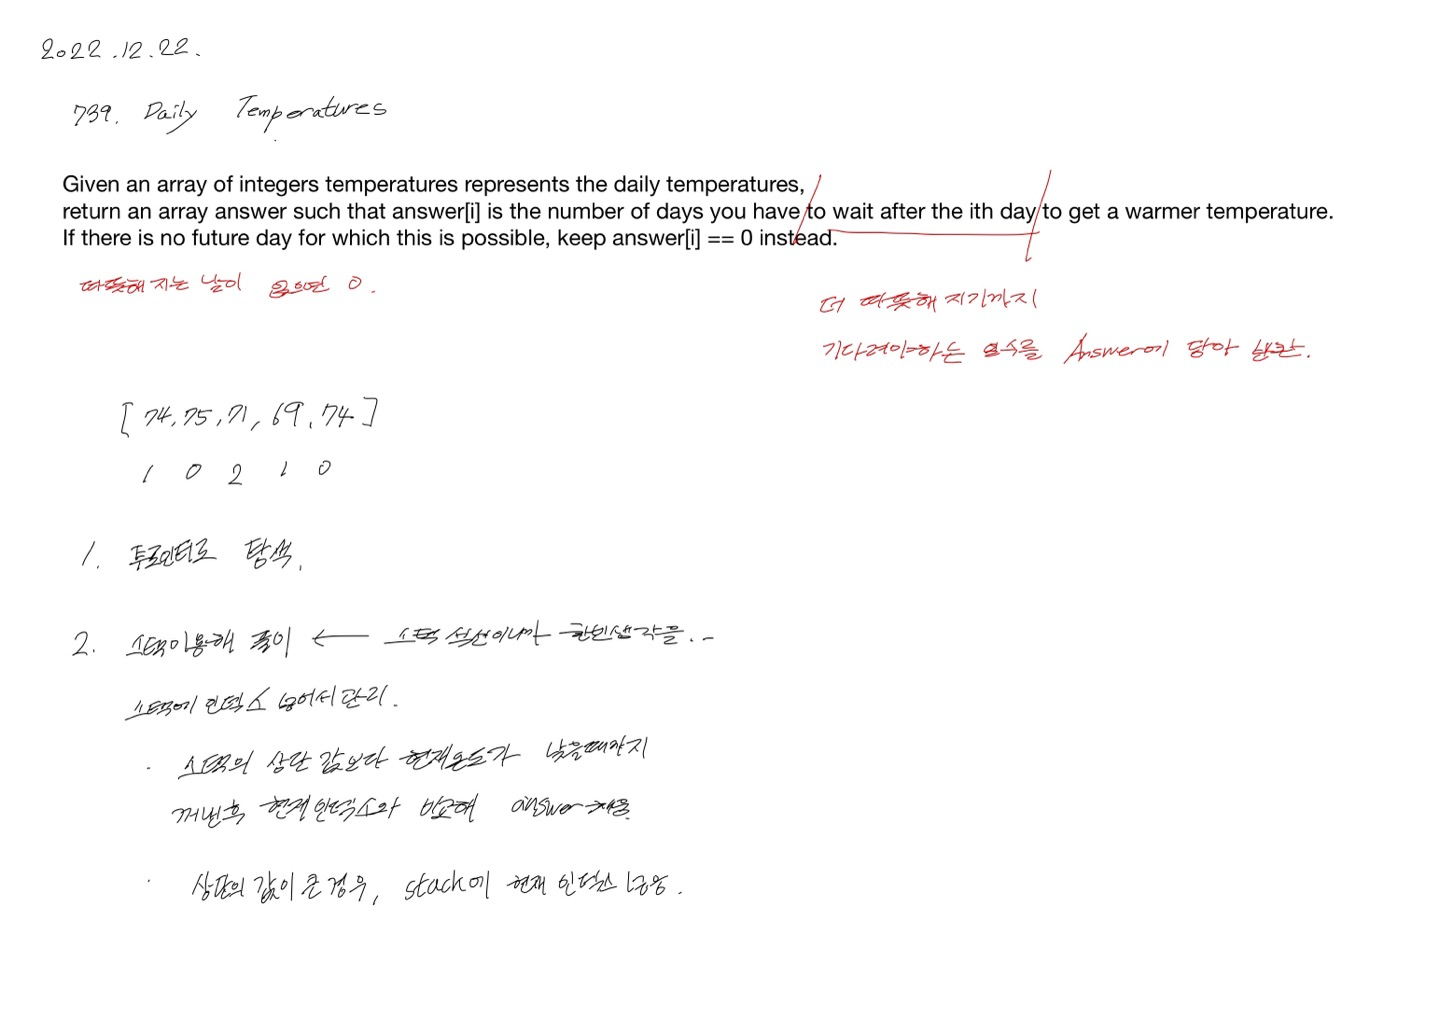 2022.12.22.
739. Daily Temperatures
Given an array of integers temperatures represents the daily temperatures,
return an array answer such that answer[i] is the number of days you have to wait after the ith day to get a warmer temperature.
If there is no future day for which this is possible, keep answer[i] == 0 instead.
따뜻해 지는 날이 없으면 0.
더 따뜻해 지기까지
기다려야하는 일수를 Answer에 담아 반환.
[74, 75, 71, 69, 74]
1 0 2 1 0
1. 투포인터로 탐색.
2. 스택이용해 풀이 ← 스택 섹션이니까 한번생각을..
스택에 인덱스 넣어서 관리.
· 스택의 상단 값보다 현재온도가 낮을때까지
꺼낸후 현재 인덱스와 비교해 answer 채움.
· 상단의 값이 큰 경우, stack에 현재 인덱스 넣음.